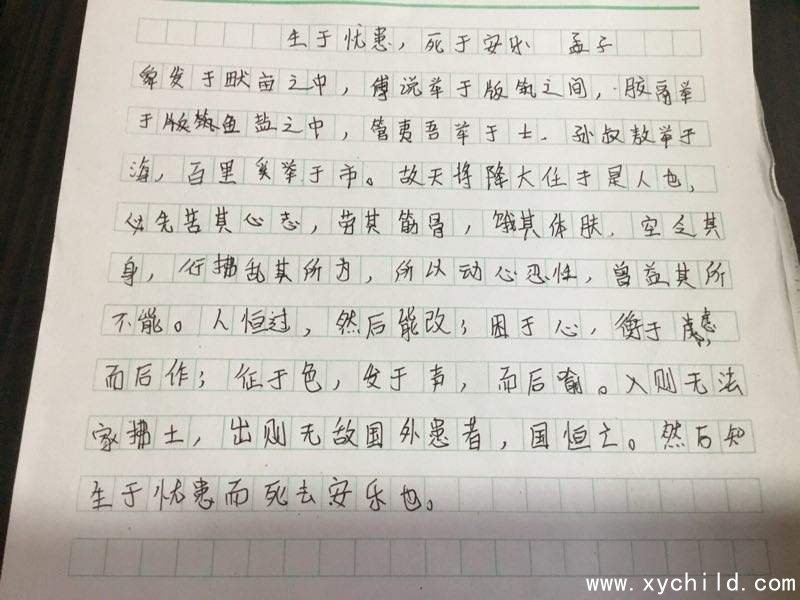 生于忧患，死于安乐 孟子
舜发于畎亩之中，傅说举于版筑之间，胶鬲举
于版筑鱼盐之中，管夷吾举于士．孙叔敖举于
海，百里奚举于市。故天将降大任于是人也，
必先苦其心志，劳其筋骨，饿其体肤．空乏其
身，行拂乱其所为，所以动心忍性，曾益其所
不能。人恒过，然后能改；困于心，衡于虑，
而后作；征于色，发于声，而后喻。入则无法
家拂士，出则无敌国外患者，国恒亡。然后知
生于忧患而死去安乐也。
www.xychild.com